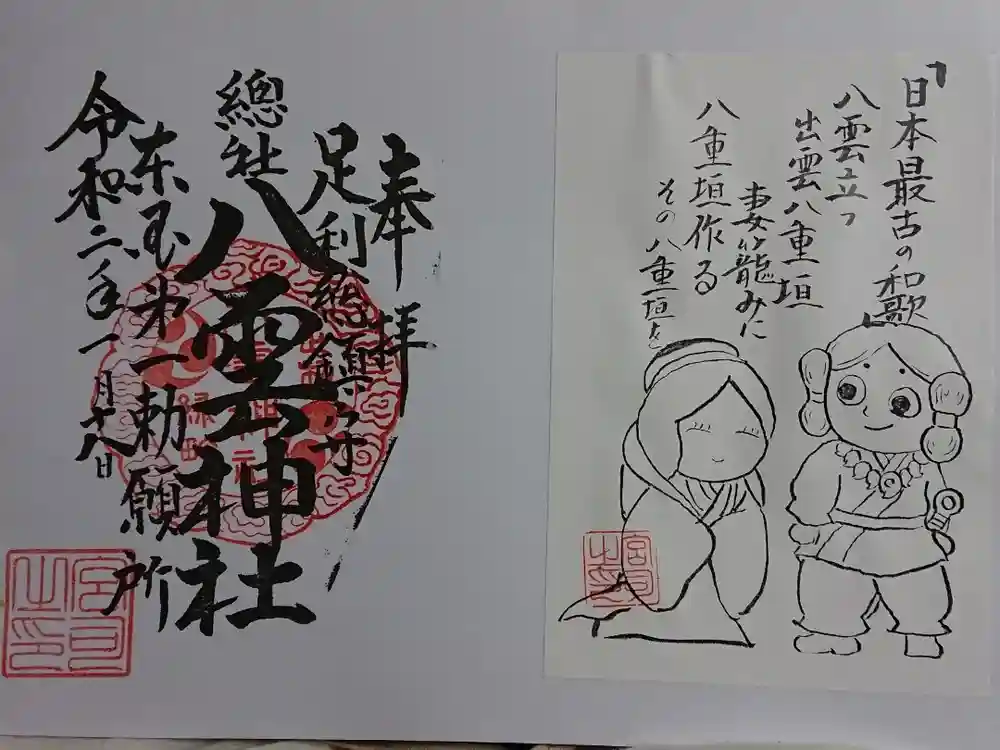 奉拝
足利総鎮守
總社
八雲神社
東国第一勅願所
令和二年一月十八日
宮司之印
「日本最古の和歌
八雲立つ
出雲八重垣
妻籠みに
八重垣作る
その八重垣を
宮司之印